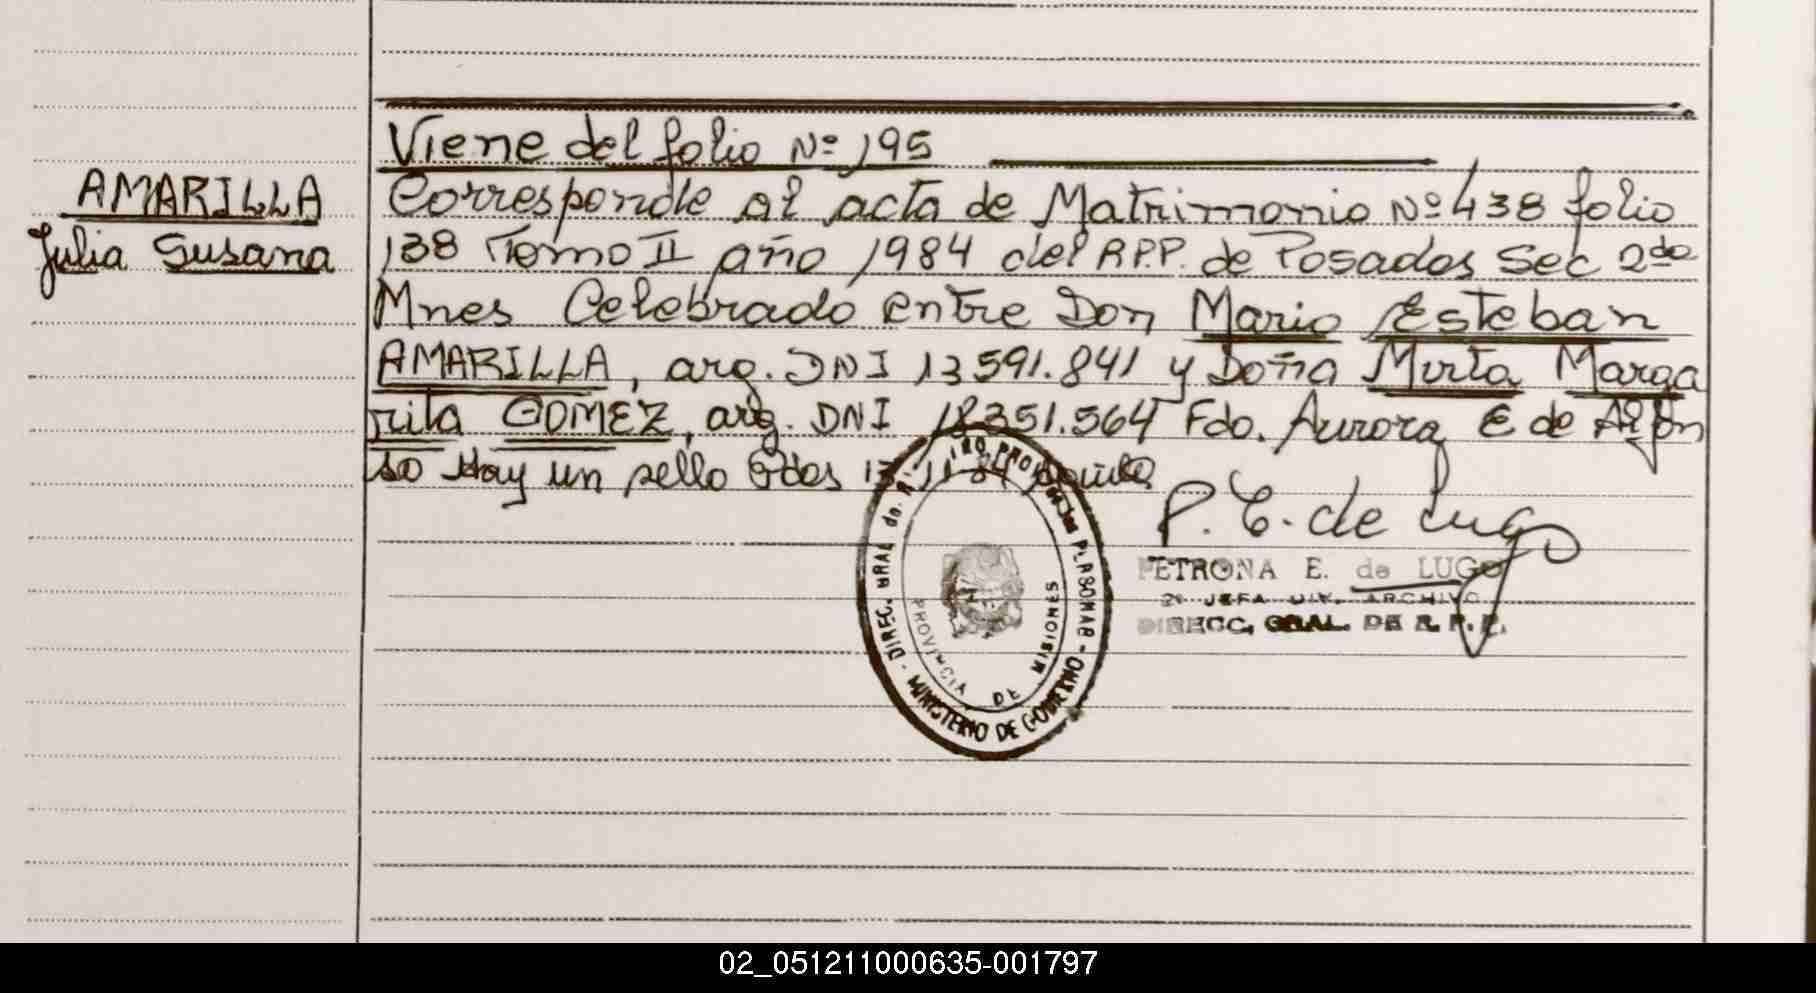 Viene del folio Nº 195
AMARILLA
Julia Susana
Corresponde al acta de Matrimonio Nº 438 folio
138 Tomo II año 1984 del R.P.P. de Posadas Sec 2da
Mnes Celebrado entre Don Mario Esteban
AMARILLA, arg. DNI 13591.841 y Doña Mirta Marga
rita GOMEZ, arg. DNI 18.351.564 Fdo. Aurora E de Alfon
so Hay un sello Pdas
P. E. de Lugo
PETRONA E. de LUGO
2º JEFA DIV. ARCHIVO
DIRECC. GRAL. DE R. P. P.
DIREC. GRAL de PERSONAS - MINISTERIO DE GOBIERNO
PROVINCIA DE MISIONES
02_051211000635-001797